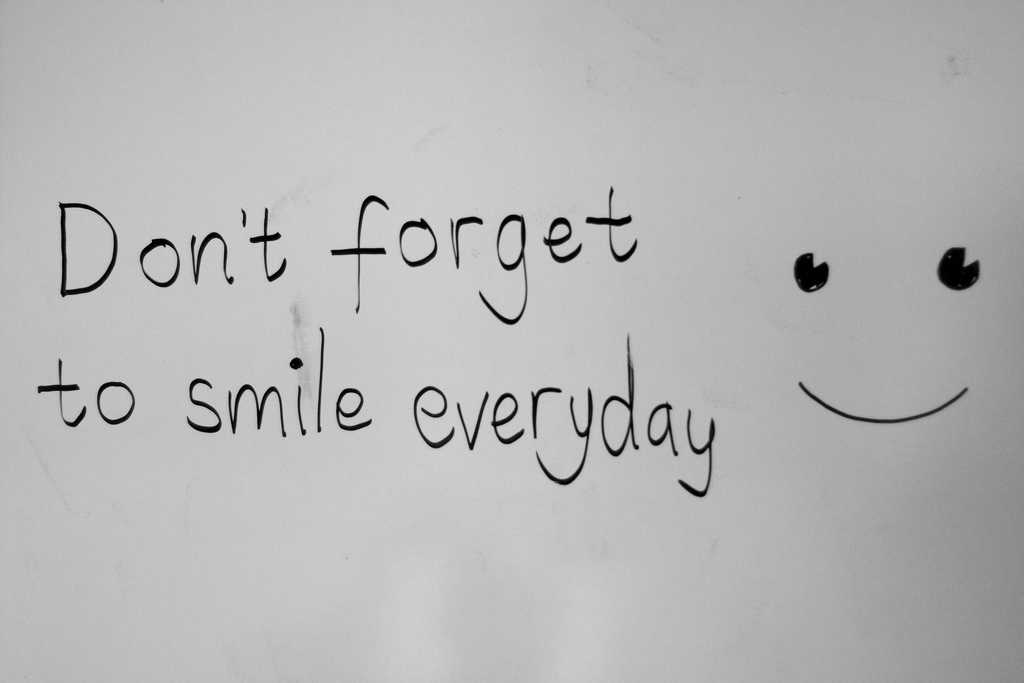 Don't forget
to smile everyday